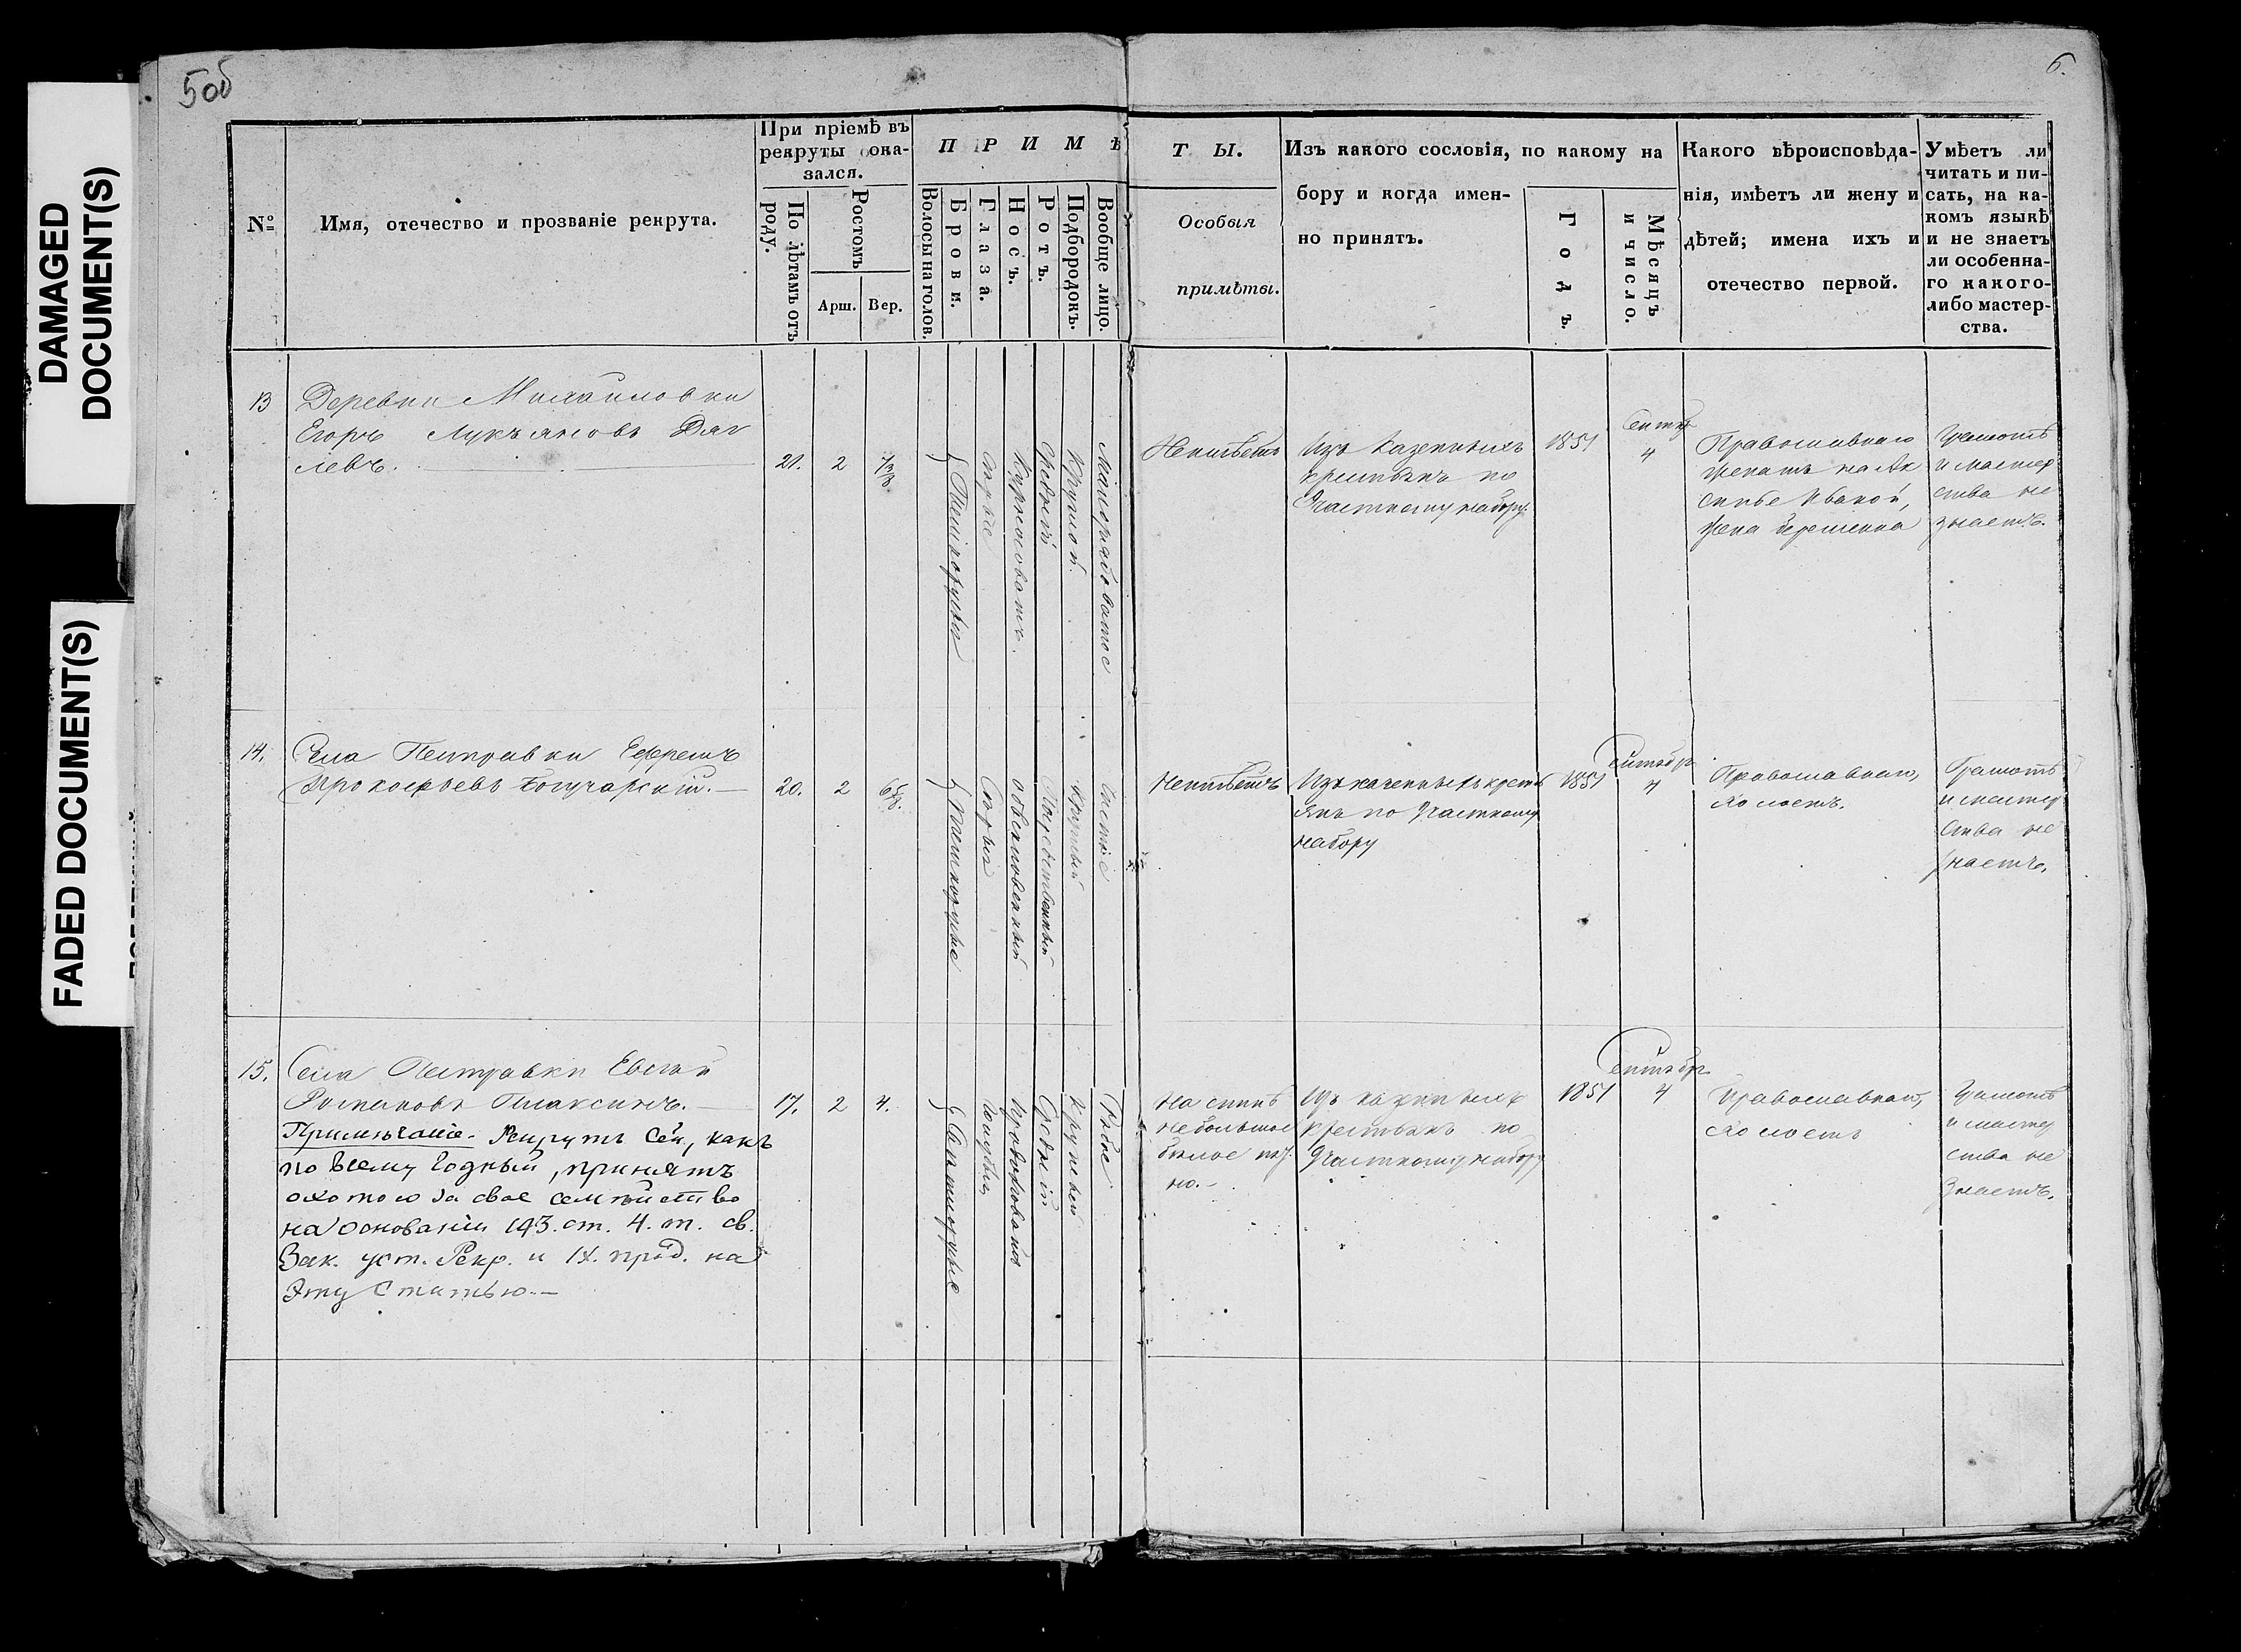 DAMAGED
DOCUMENT(S)
FADED DOCUMENT(S)
5об
6.
№
Имя, отечество и прозваніе рекрута.
При пріемѣ въ
рекруты ока-
зался.
По лѣтамъ отъ
роду.
Ростомъ
Арш.
Вер.
П Р И М Ѣ
Волосы на голов.
Брови.
Глаза.
Носъ.
Ротъ.
Подбородокъ.
Вообще лицо.
Т Ы.
Особыя
примѣты.
Изъ какого сословія, по какому на
бору и когда имен-
но принятъ.
Годъ.
Мѣсяцъ
и число.
Какого вѣроисповѣда-
нія, имѣетъ ли жену и
дѣтей; имена ихъ и
отечество первой.
Умѣетъ ли
читать и пи-
сать, на ка-
комъ языкѣ
и не знаетъ
ли особенна-
го какого-
либо мастер-
ства.
13
Деревни Михайловки
Егоръ Лукъяновъ Дяг
левъ.
21.
2
7 3/8
Темнорусыя
Сѣрые
Курносоватъ.
Средній
Круглой.
Малорябоватое
Неимѣетъ
Изъ казенныхъ
крестьянъ по
Участкому набору.
1851
Сентяб
4
Православнаго
женатъ на Ак
синье
жена беременна
Грамотѣ
и мастер
ства не
знаетъ.
14.
Села Петровки Ефремъ
Прокофьевъ Богучарскій.
20.
2
6 5/8.
Темнорусые
Сѣрыя
Обыкновенный
Посредственный
Круглый
Чистое
Неимѣетъ
Изъ казенныхъ кресть
янъ по Участкому
набору
1851
Сентябр
4
Православнаго,
холостъ.
Грамотѣ
и мастер
ства не
знаетъ.
15.
Села Петровки Евсѣй
Романовъ Плаксинъ.
Примѣчаніе. Рекрутъ Сей, какъ
по всему годный, принятъ
охотою за свое семѣйство
на основаніи 193. ст. 4. т. св.
Зак. уст. Рекр. и IX. прод. на
Эту Статью.
17.
2
4.
Свѣтлорусые
Голубые
Средній
Круглый
Рябое
На спинѣ
небольшое
бѣлое пят
но.
Изъ казенныхъ
крестьянъ по
Участкому набору
1851
Сентябр
4
Православнаго,
холостъ
Грамотѣ
и мастер
ства не
знаетъ.